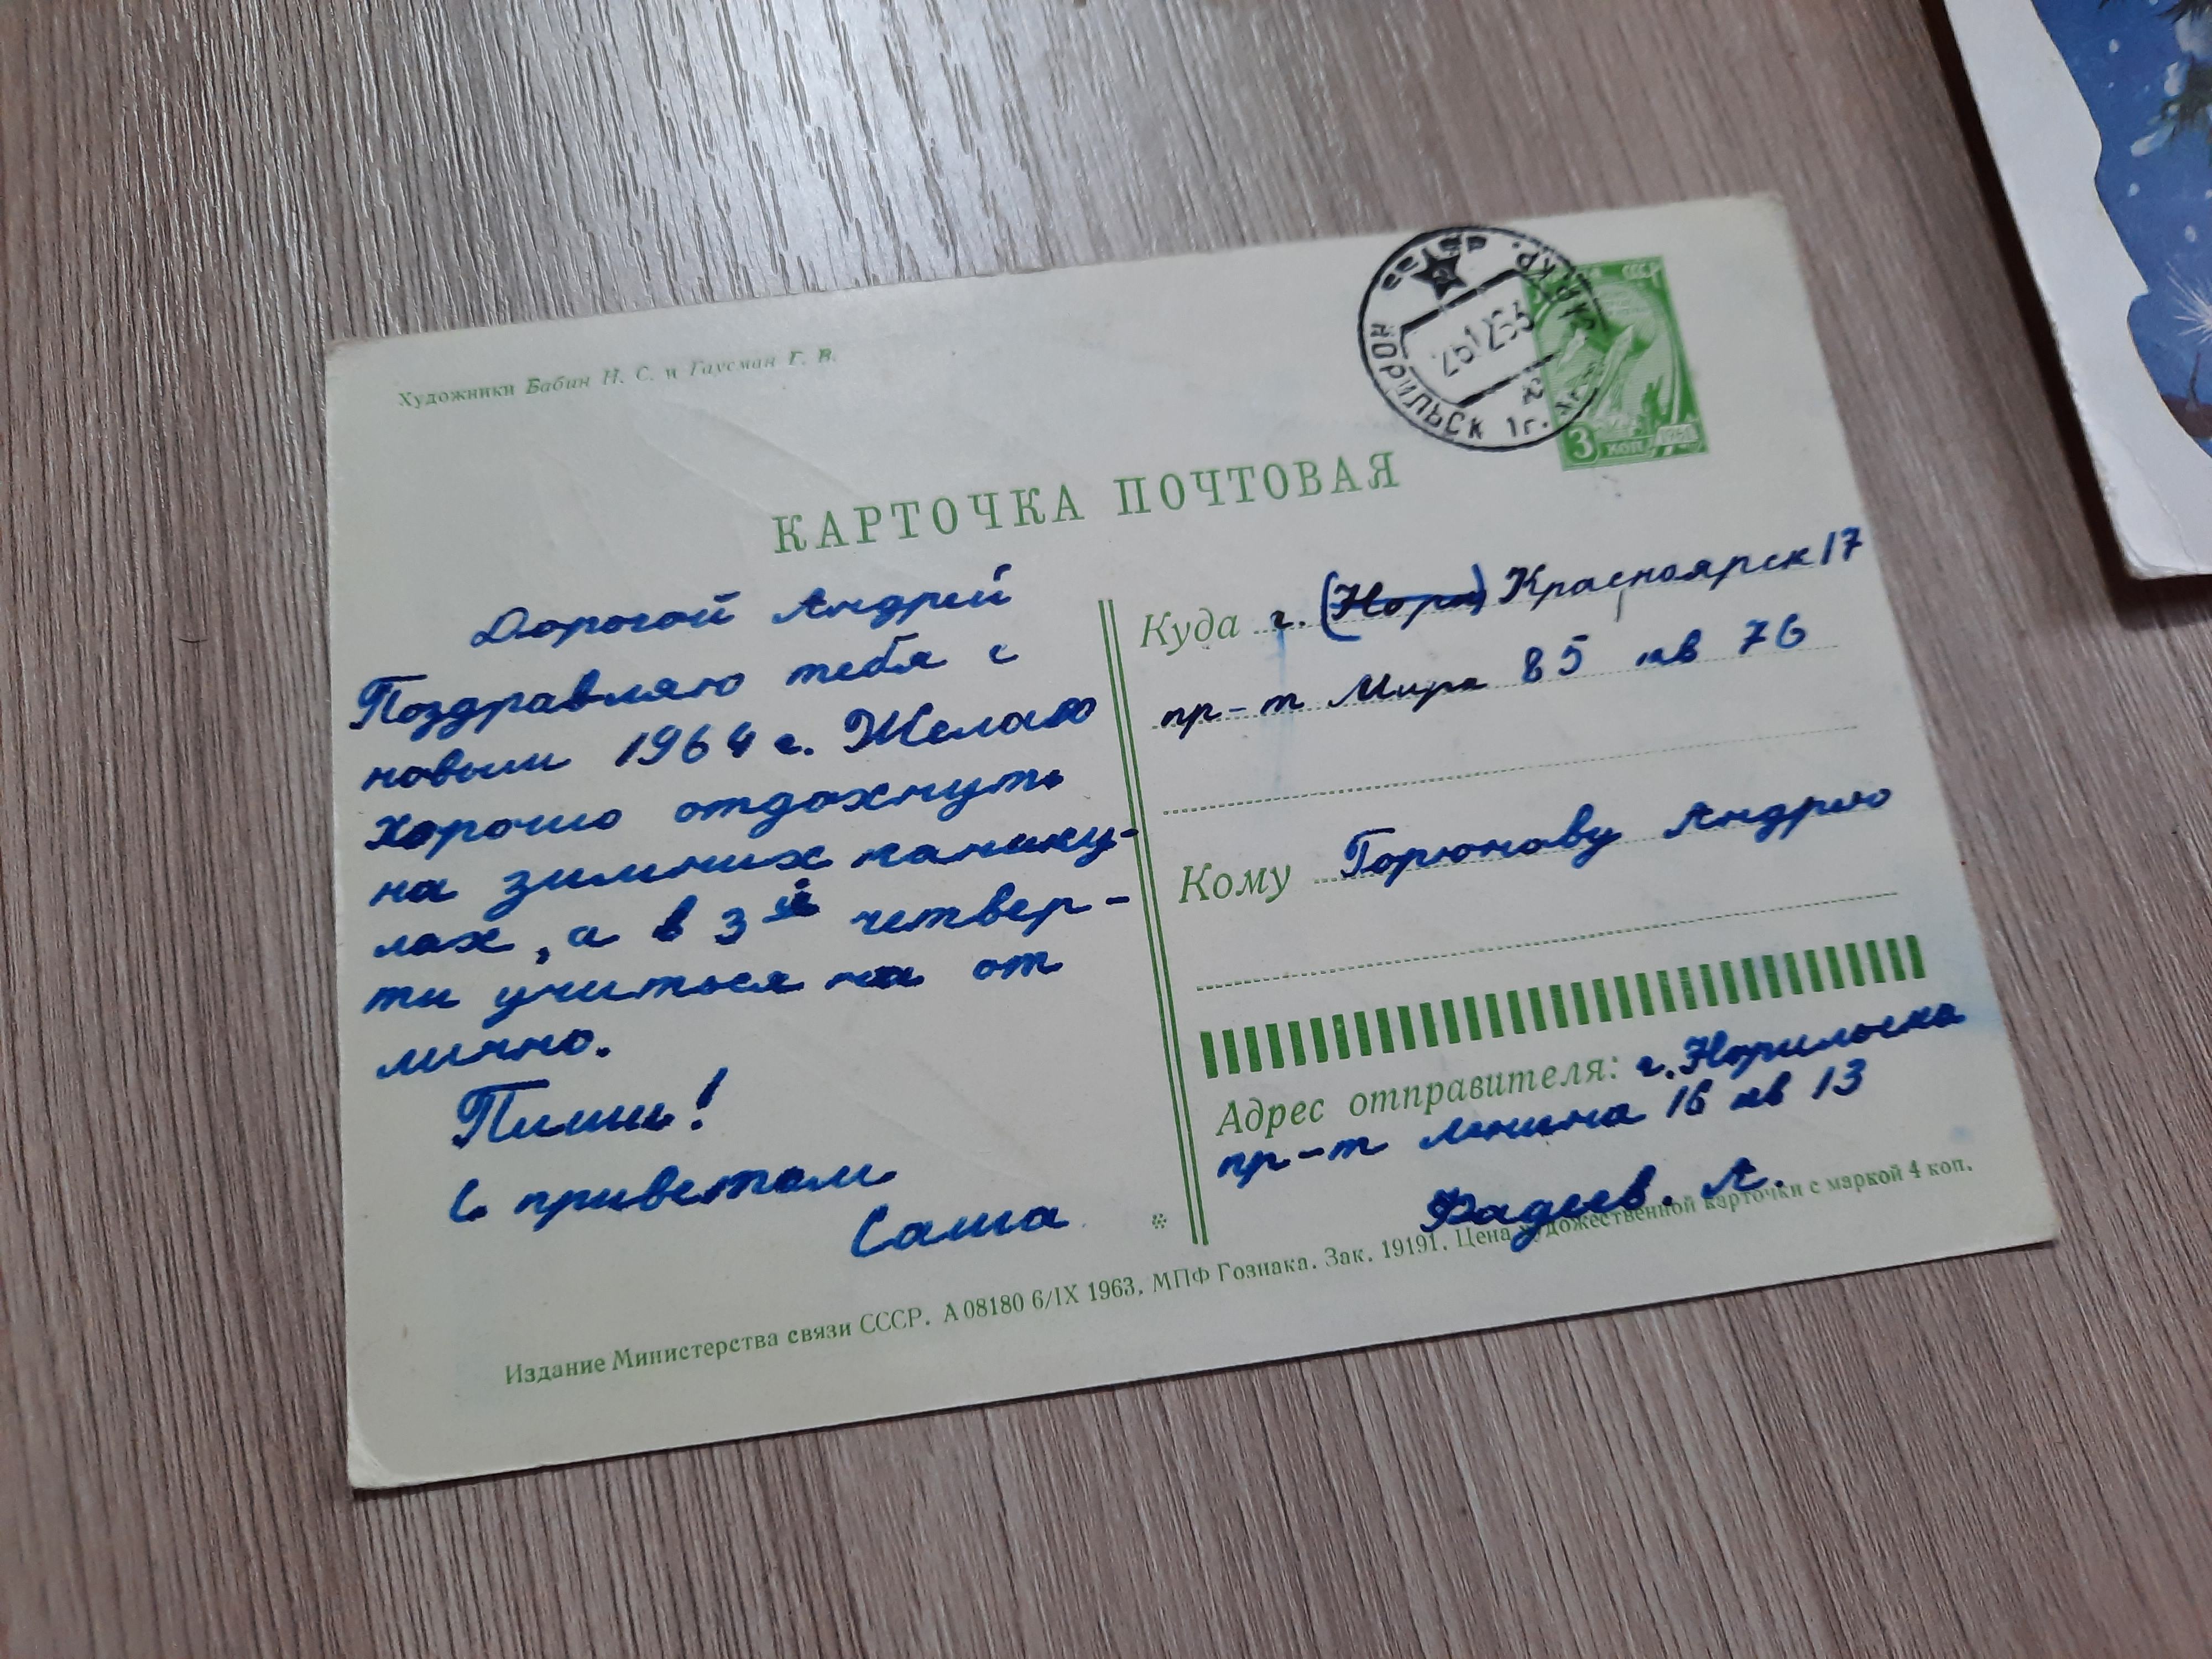 Художники Бабин Н. С. и Гаусман Г. В.
НОРИЛЬСК 1 г. КРАСНОЯР. КР.
СССР
3 КОП 1961
КАРТОЧКА ПОЧТОВАЯ
Дорогой Андрей
Поздравляю тебя с
новым 1964 г. Желаю
хорошо отдохнуть
на зимних канику-
лах, а в 3 ей четвер-
ти учиться на от
лично.
Пиши!
С приветом
Саша
Куда г. (Нори) Красноярск 17
пр-т Мира 85 кв 76
Кому Горюнову Андрею
Адрес отправителя: г. Норильска
пр-т Ленина 16 кв 13
Фадеев. А.
Издание Министерства связи СССР. А 08180 6/IX 1963. МПФ Гознака. Зак. 19191. Цена художественной карточки с маркой 4 коп.